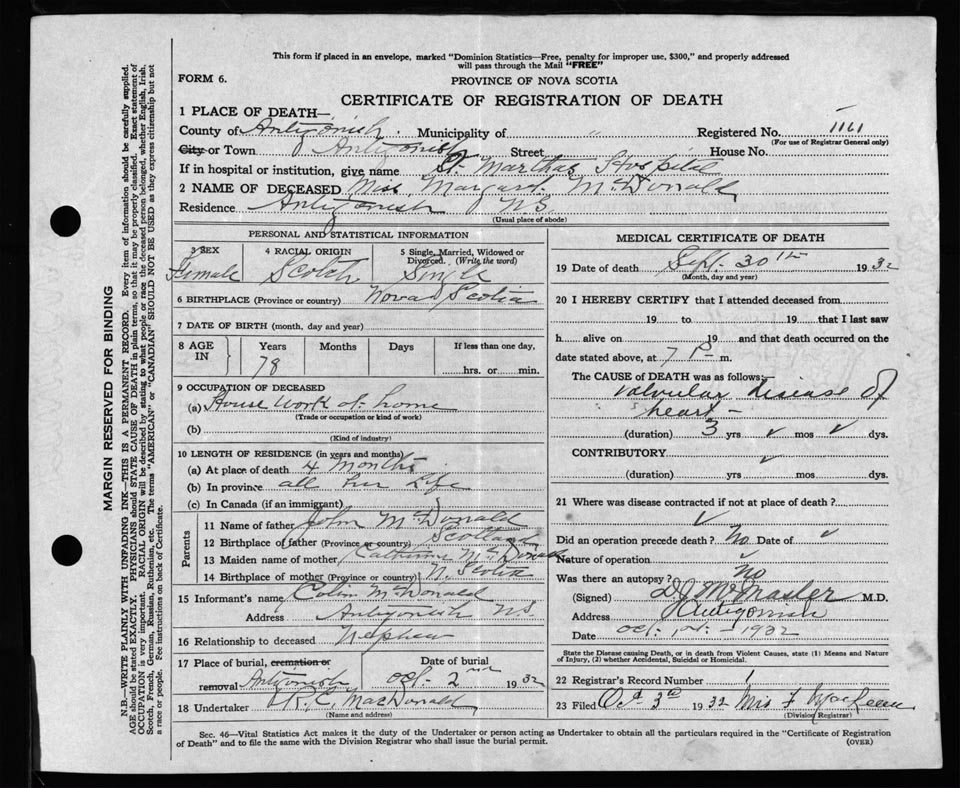 This form if placed in an envelope, marked "Dominion Statistics—Free, penalty for improper use, $300," and properly addressed
will pass through the Mail "FREE"
FORM 6.
PROVINCE OF NOVA SCOTIA
CERTIFICATE OF REGISTRATION OF DEATH
1 PLACE OF DEATH—
County of Antigonish. Municipality of " Registered No. 1161
(For use of Registrar General only)
City or Town Antigonish Street House No.
If in hospital or institution, give name St. Marthas Hospital
2 NAME OF DECEASED Miss Margaret McDonald
Residence Antigonish N.S.
(Usual place of abode)
PERSONAL AND STATISTICAL INFORMATION
3 SEX 4 RACIAL ORIGIN 5 Single, Married, Widowed or
Divorced. (Write the word)
Female Scotch Single
6 BIRTHPLACE (Province or country) Nova Scotia
7 DATE OF BIRTH (month, day and year)
8 AGE IN Years Months Days If less than one day,
78 hrs. or min.
9 OCCUPATION OF DECEASED
(a) House Work at home
(Trade or occupation or kind of work)
(b)
(Kind of industry)
10 LENGTH OF RESIDENCE (in years and months)
(a) At place of death 4 months
(b) In province all her life
(c) In Canada (if an immigrant)
Parents
11 Name of father John McDonald
12 Birthplace of father (Province or country) Scotland
13 Maiden name of mother Catherine McDonald
14 Birthplace of mother (Province or country) N. Scotia
15 Informant's name Colin McDonald
Address Antigonish N.S.
16 Relationship to deceased Nephew
17 Place of burial, cremation or Date of burial
removal Antigonish Oct. 2nd 1932
18 Undertaker C. MacDonald
(Name and address)
MEDICAL CERTIFICATE OF DEATH
19 Date of death Sept. 30th 1932
(Month, day and year)
20 I HEREBY CERTIFY that I attended deceased from
19 to 19 that I last saw
h alive on 19 and that death occurred on the
date stated above, at 7 P. m.
The CAUSE of DEATH was as follows:—
Valvular disease of
heart -
(duration) 3 yrs ✓ mos ✓ dys.
CONTRIBUTORY
(duration) ✓ yrs mos dys.
21 Where was disease contracted if not at place of death?
✓
Did an operation precede death? No Date of ✓
Nature of operation ✓
Was there an autopsy? No
(Signed) McMaster M.D.
Address Antigonish
Date Oct. 1st - 1932
State the Disease causing Death, or in death from Violent Causes, state (1) Means and Nature
of Injury, (2) whether Accidental, Suicidal or Homicidal.
22 Registrar's Record Number 1
23 Filed Oct 3rd 1932 Mrs F MacLean
(Division Registrar)
Sec. 46—Vital Statistics Act makes it the duty of the Undertaker or person acting as Undertaker to obtain all the particulars required in the "Certificate of Registration
of Death" and to file the same with the Division Registrar who shall issue the burial permit.
(OVER)
MARGIN RESERVED FOR BINDING
N.B.—WRITE PLAINLY WITH UNFADING INK—THIS IS A PERMANENT RECORD. Every item of information should be carefully supplied.
AGE should be stated EXACTLY. PHYSICIANS should STATE CAUSE OF DEATH in plain terms, so that it may be properly classified. Exact statement of
OCCUPATION is very important. RACIAL ORIGIN will be described by stating to what people or race the deceased person belonged, whether English, Irish,
Scotch, French, German, Russian, Ruthenian, etc. The terms "AMERICAN" or "CANADIAN" SHOULD NOT BE USED as they express citizenship but not
a race or people. Fee instructions on back of Certificate.